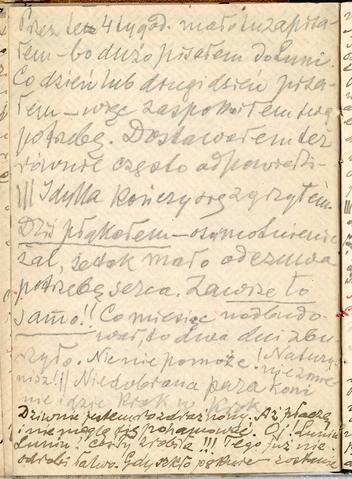 Przez te 4 tygod. mało tu zapisa-
łem – bo dużo pisałem do Luni.
Co dzień lub drugi dzień pisa-
łem – więc zaspokoiłem tą
potrzebę. Dostawałem też
równie często odpowiedzi –
!!! Idylla kończy się zgrzytem.
Dziś płakałem – osamotnienie
żal, że tak mało odczuwa
potrzebę serca. Zawsze to
samo!! Co miesiąc nadbudo-
wać, to dwa dni zbu-
rzyło. Nic nie pomoże! Natury
nie zmie-
nisz!!! Niedobrana para koni
nie idzie krok w krok
Dziwnie jestem rozdrażniony. Aż płaczę
i nie mogę się pohamować. O! Luniu
Luniu! coś ty zrobiła!!! Tego już nie
odrobi łatwo. Gdy szkło pęknie zostanie